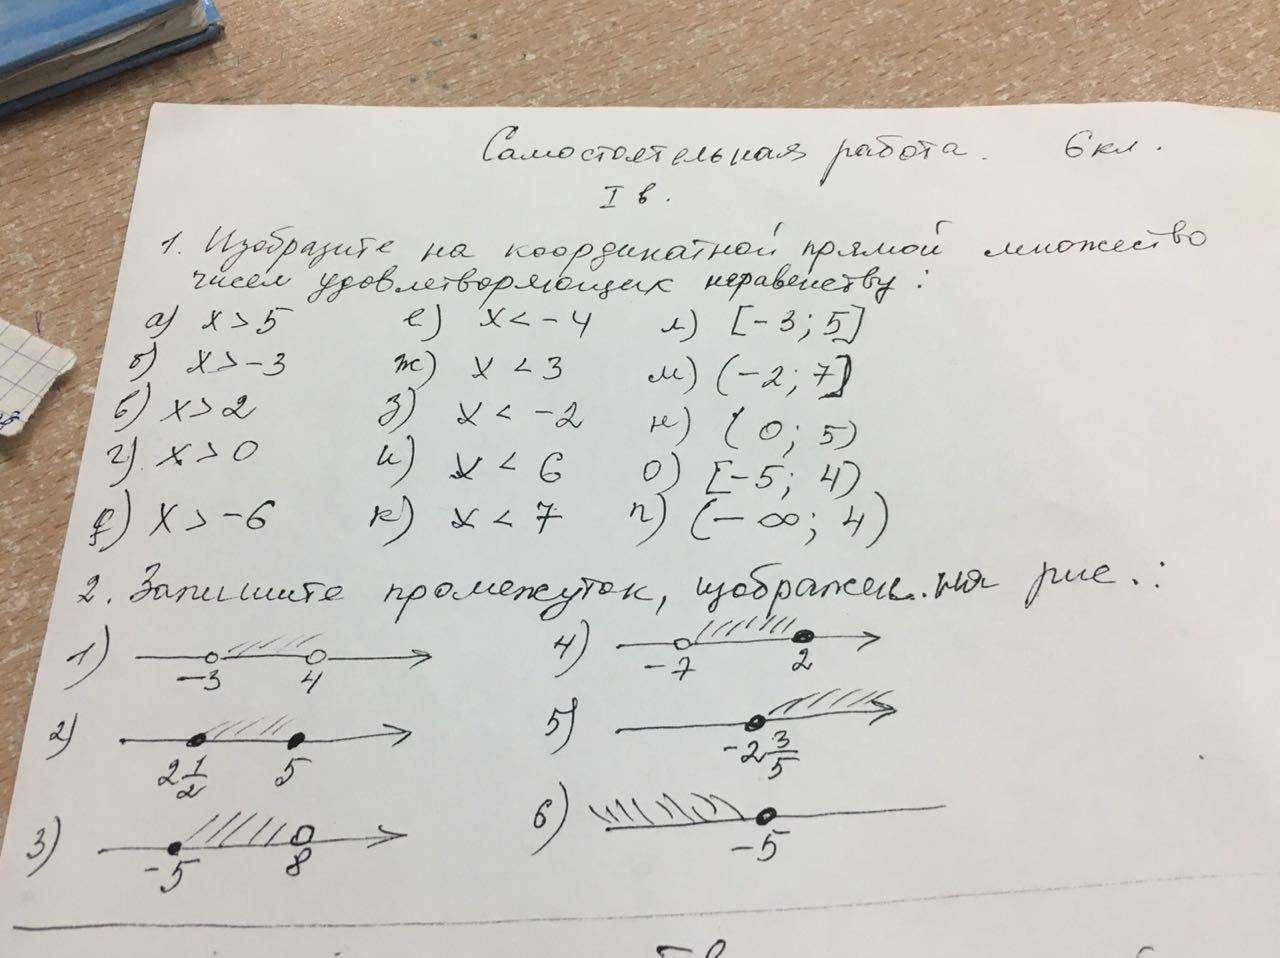 Самостоятельная работа. 6 кл.
I в.
1. Изобразите на координатной прямой множество
чисел удовлетворяющих неравенству:
а) x > 5 е) x < -4 л) [-3; 5]
б) x > -3 ж) x < 3 м) (-2; 7]
в) x > 2 з) x < -2 н) (0; 5)
г) x > 0 и) x < 6 о) [-5; 4)
д) x > -6 к) x < 7 п) (-∞; 4)
2. Запишите промежуток, изображен. на рис.:
1) -3 4 4) -7 2
2) 2 1/2 5 5) -2 3/5
3) -5 8 6) -5